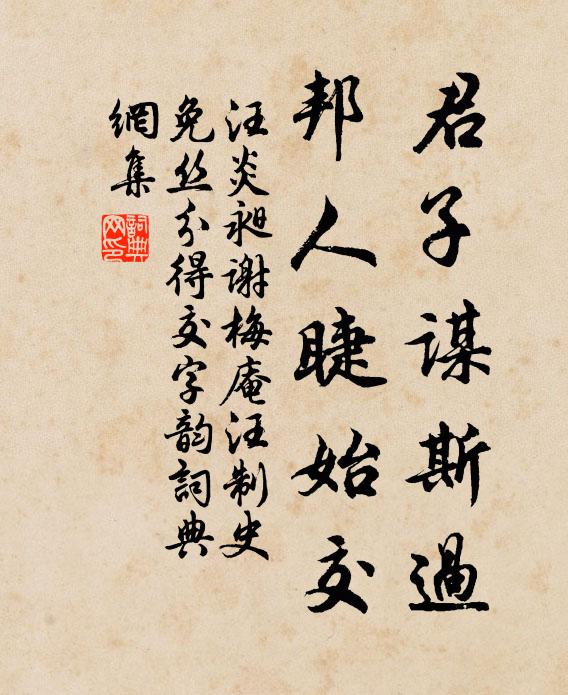 君子謀斯過
邦人睫始交
汪炎昶謝梅庵汪制史
免丝分得交字韵詞典
網集
詞典網印